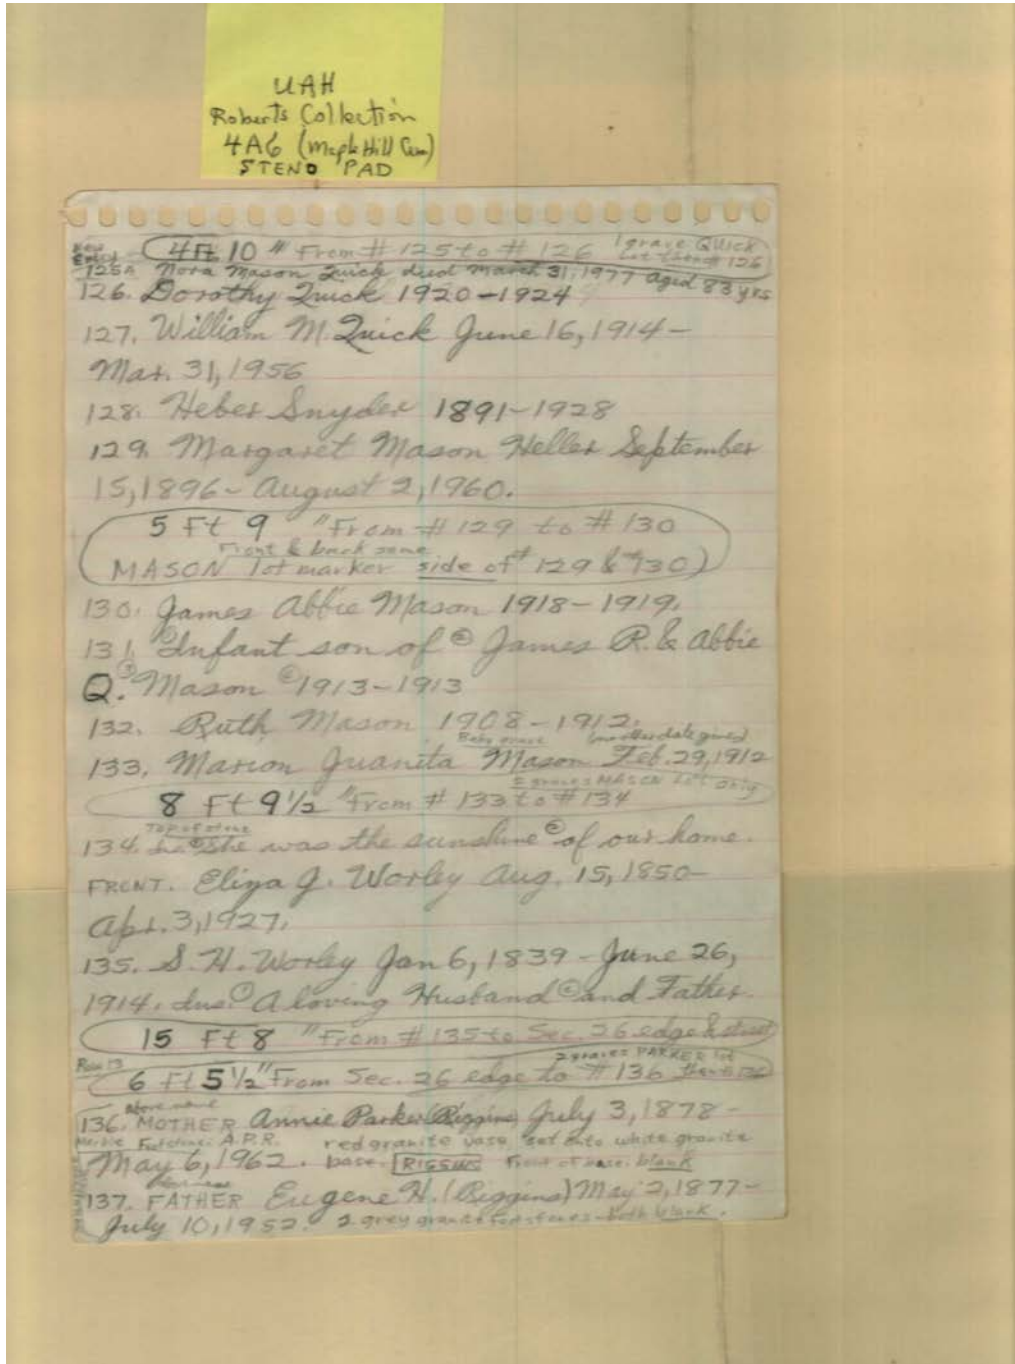 UAH
Roberts Collection
4A6 (Maple Hill Cem)
STENO PAD
4 Ft 10 " From # 125 to # 126 1 grave QUICK
lot then # 126
125A Nora Mason Quick died March 31, 1977 aged 83 yrs
126. Dorothy Quick 1920-1924
127. William M. Quick June 16, 1914-
Mar. 31, 1956
128. Heber Snyder 1891-1928
129. Margaret Mason Heller September
15, 1896- August 2, 1960.
5 Ft 9 " From # 129 to # 130
Front & back same
MASON lot marker side of # 129 & # 130)
130. James Abbie Mason 1918-1919.
131. Infant son of © James R. & Abbie
Q. Mason © 1913-1913
132. Ruth Mason 1908-1912.
Baby grave (no other date given)
133. Marion Juanita Mason Feb. 29, 1912
graves MASON lot only
8 Ft 9 1/2 " From # 133 to # 134
Top of stone
134. She was the sunshine © of our home.
FRONT. Eliza J. Worley Aug. 15, 1850-
Apr. 3, 1927.
135. S. H. Worley Jan 6, 1839 - June 26,
1914. Ins. A loving Husband © and Father.
15 Ft 8 " From # 135 to Sec. 26 edge & street
Row 13 2 graves PARKER lot
6 Ft 5 1/2 " From Sec. 26 edge to # 136 then # 136
above name
136. MOTHER Annie Parker (Riggins) July 3, 1878 -
Marble Footstone: A.P.R. red granite vase set onto white granite
May 6, 1962. base. RIGGINS Front of base: blank
137. FATHER Eugene H. (Riggins) May 2, 1877-
July 10, 1952. 2 grey granite footstones - both blank.